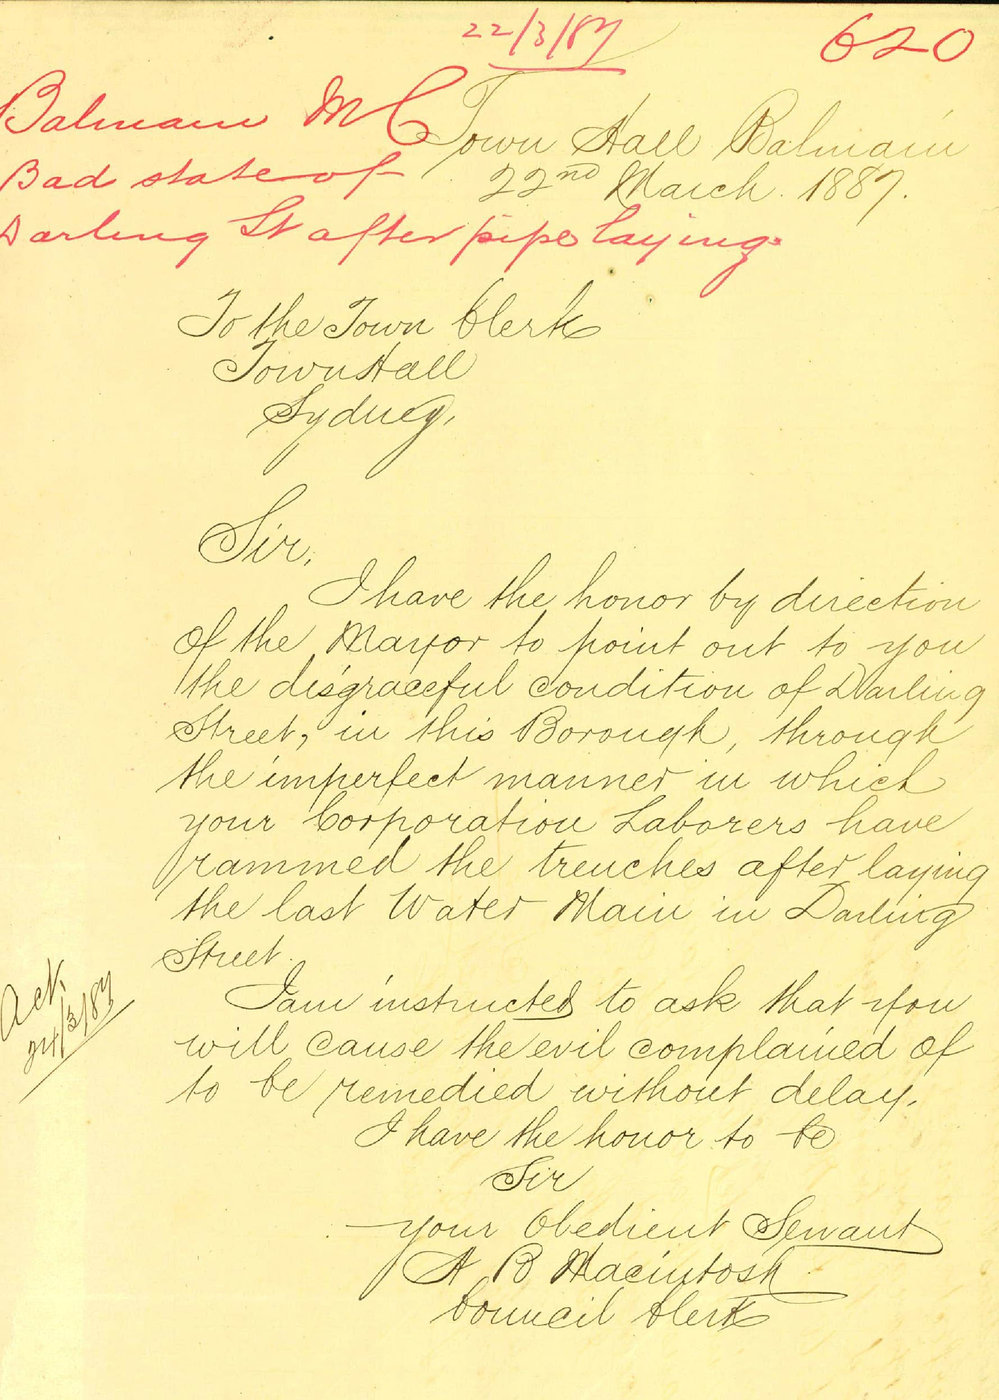 22/3/87
620
Balmain M C
Bad state of
Darling St after pipe laying
Town Hall Balmain
22nd March. 1887.
To the Town Clerk
Town Hall
Sydney,
Sir,
I have the honor by direction
of the Mayor to point out to you
the disgraceful condition of Darling
Street, in this Borough, through
the imperfect manner in which
your Corporation Laborers have
rammed the trenches after laying
the last Water Main in Darling
Street.
I am instructed to ask that you
will cause the evil complained of
to be remedied without delay.
Ack.
24/3/87
I have the honor to be
Sir
your Obedient Servant
A B Macintosh
Council Clerk